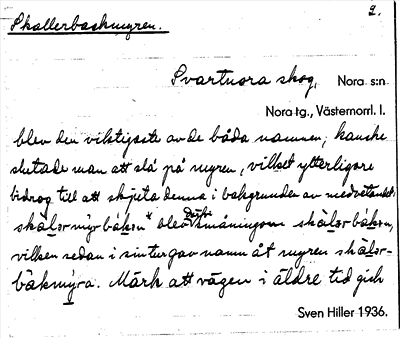 Skallerbackmyren.
2.
Svartnora skog,
Nora s:n
Nora tg., Västernorrl. l.
blev den viktigaste av de båda namnen, kanske
slutade man att slå på myren, vilket ytterligare
bidrog till att skjuta denna i bakgrunden av medvetandet.
blev Därför småningom
vilken sedan i sin tur gav namn åt myren skäler-
bäkmýra. Märk att vägen i äldre tid gick
Sven Hiller 1936.